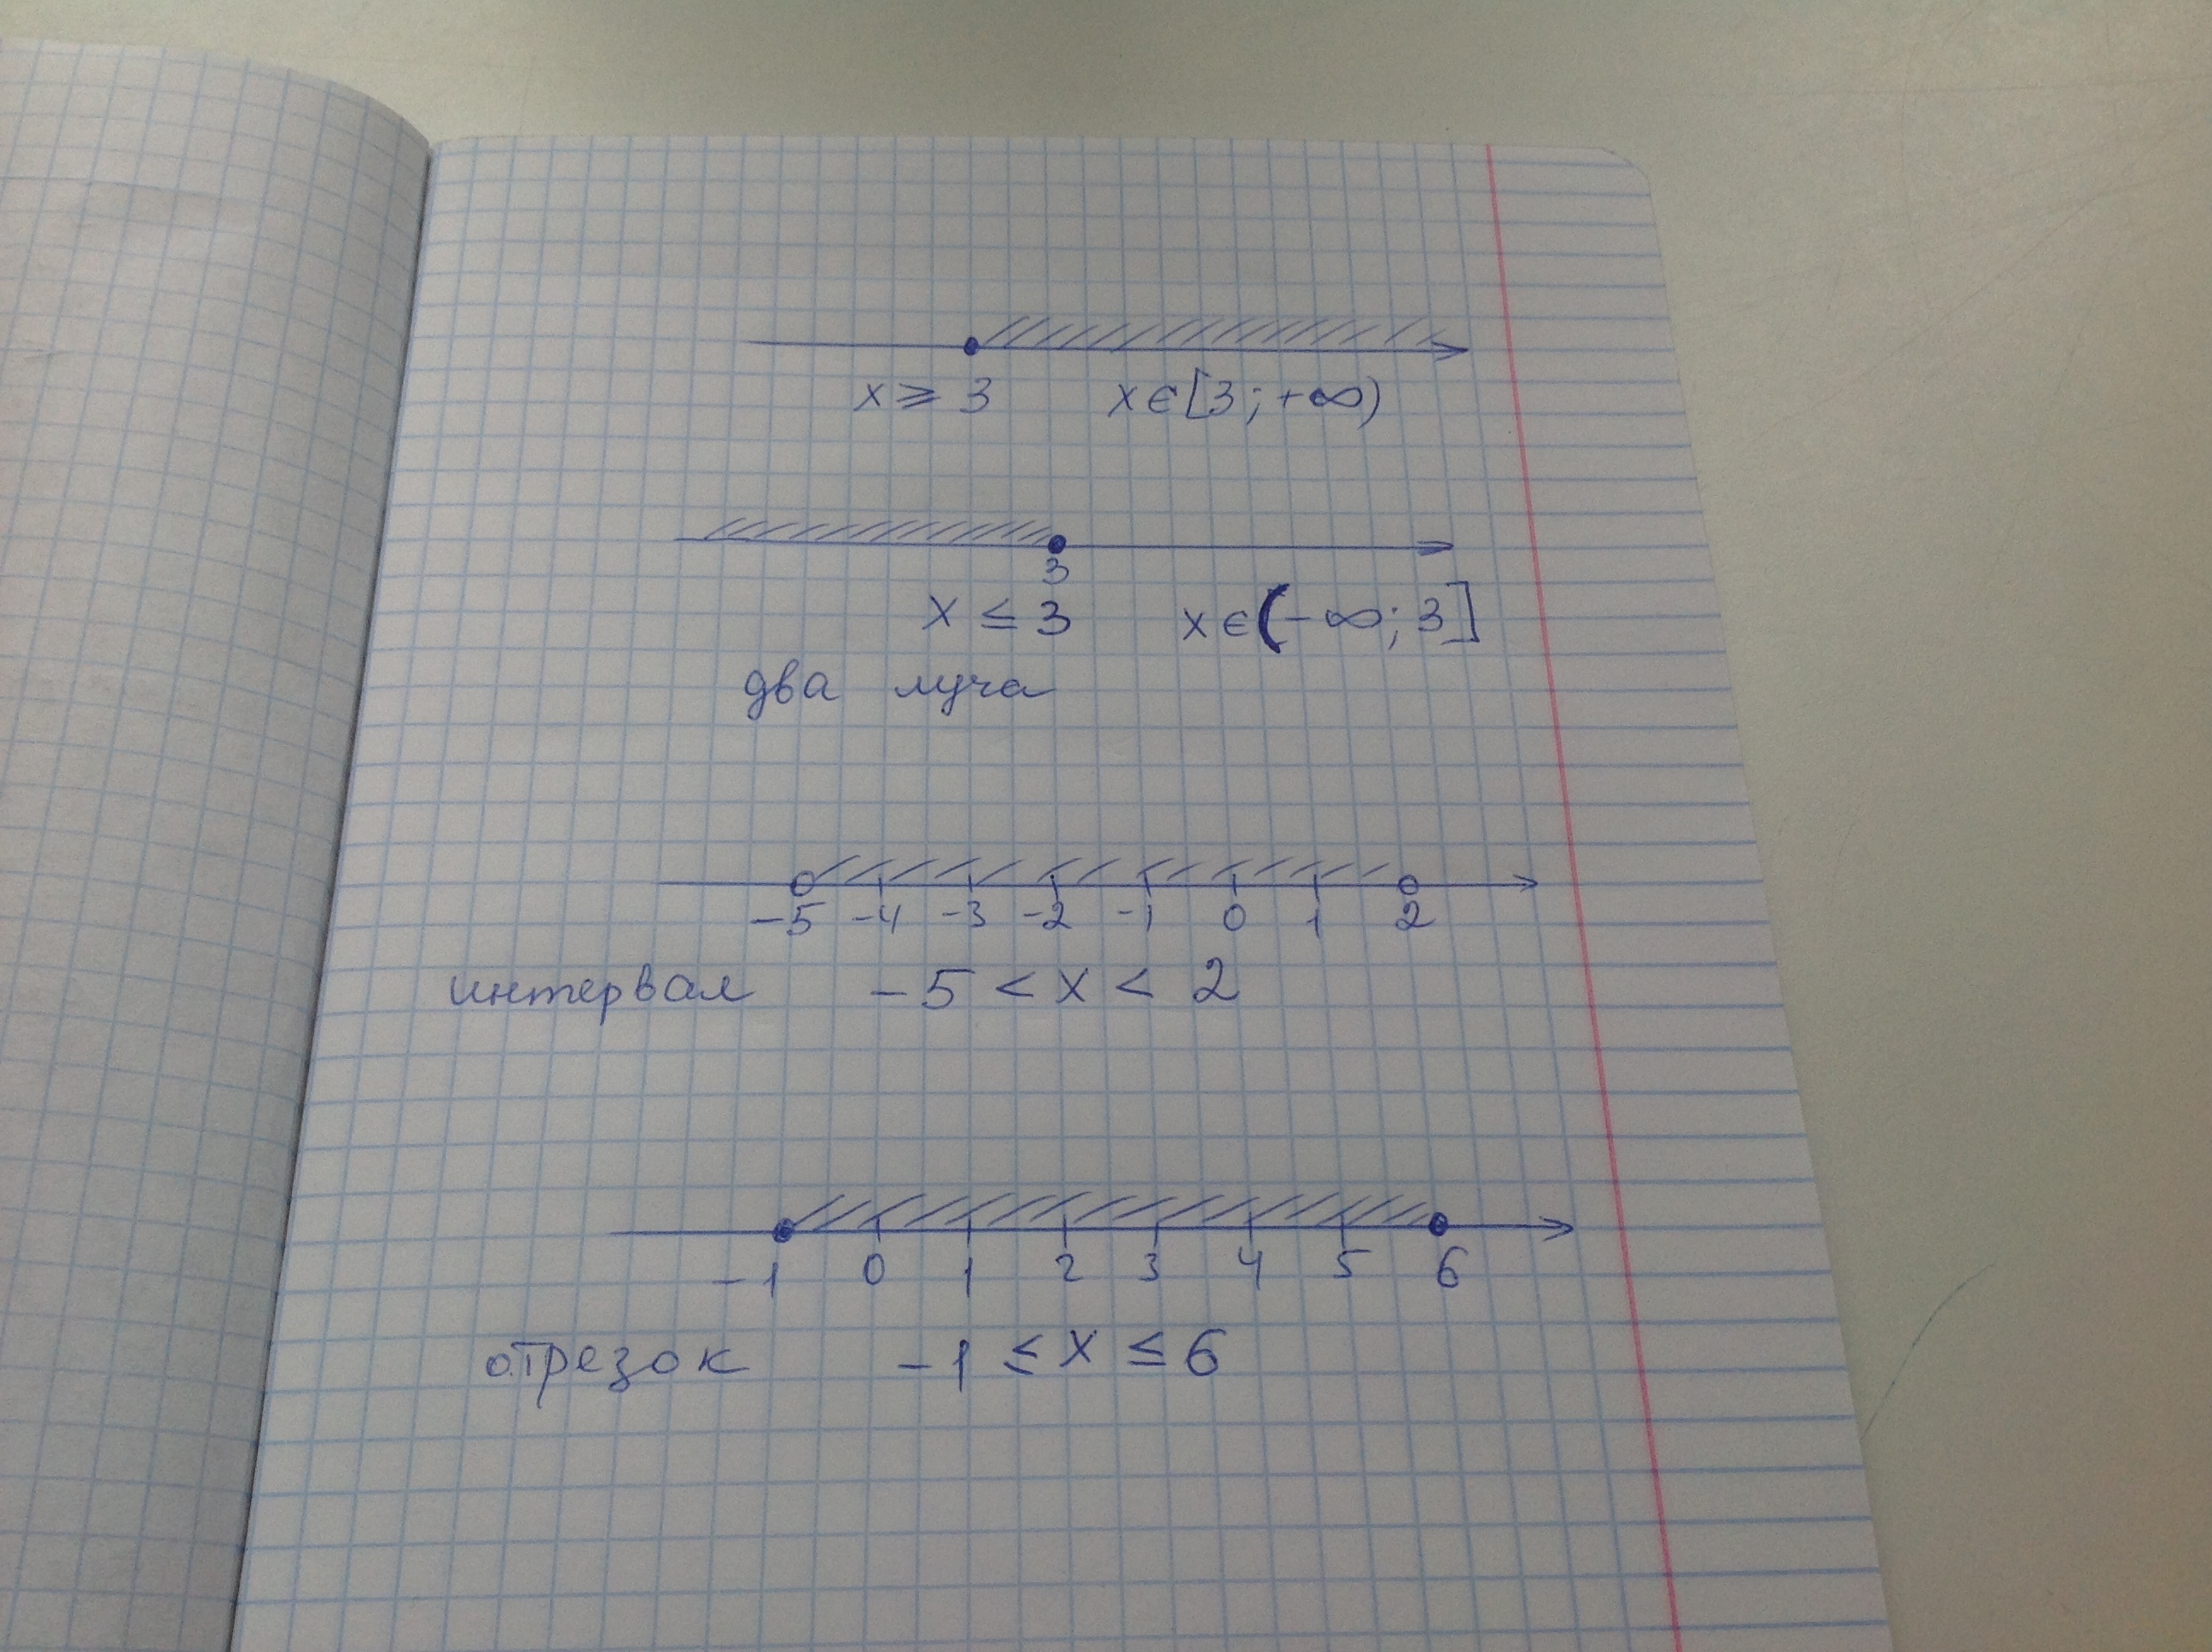 x ⩾ 3 x ∈ [3; +∞)
3
x ≤ 3 x ∈ (-∞; 3]
два луча
-5 -4 -3 -2 -1 0 1 2
интервал -5 < x < 2
-1 0 1 2 3 4 5 6
отрезок -1 ≤ x ≤ 6